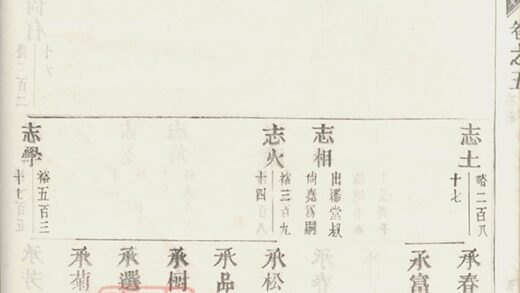 卷之五
志土
裕二百八
十七
志相
出繼堂叔
尙堯爲嗣
志火
裕三百九
十四
志學
裕五百三
十七
承春
承富
承松
承品
承樹
承選
承菊